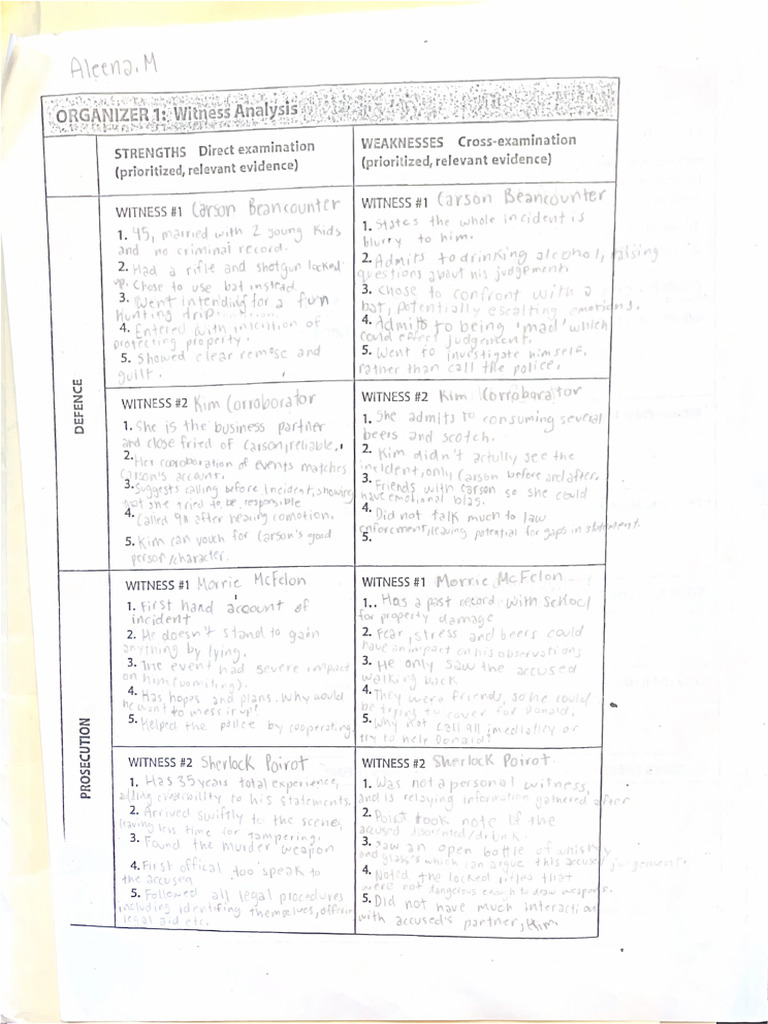 Aleena.M
ORGANIZER 1: Witness Analysis
STRENGTHS Direct examination
(prioritized, relevant evidence)
WEAKNESSES Cross-examination
(prioritized, relevant evidence)
DEFENCE
WITNESS #1 Carson Beancounter
1. 45, married with 2 young kids
and no criminal record.
2. Had a rifle and shotgun locked
up. Chose to use bat instead.
3. Went intending for a fun
hunting trip
4. Entered with intention of
protecting property.
5. Showed clear remose and
guilt.
WITNESS #1 Carson Beancounter
1. States the whole incident is
blurry to him.
2. Admits to drinking alcohol, raising
questions about his judgement.
3. Chose to confront with a
bat, potentially escalting emotions.
4. Admits to being 'mad' which
could effect judgement.
5. Went to investigate himself.
rather than call the police.
WITNESS #2 Kim Corroborator
1. She is the business partner
and close fried of Carson, reliable.
2. Her cooroboration of events matches
Carson's account.
3. Suggests calling before incident, showing
that she tried to be responsible
4. Called 911 after hearing comotion.
5. Kim can vouch for Carson's good
person/character.
WITNESS #2 Kim Corroborator
1. She admits to consuming several
beers and scotch.
2. Kim didn't actully see the
incident, only Carson before and after.
3. Friends with Carson so she could
have emotional bias.
4. Did not talk much to law
enforcement, leaving potential for gaps in statement.
5.
PROSECUTION
WITNESS #1 Morrie McFelon
1. First hand account of
incident
2. He doesn't stand to gain
anything by lying.
3. The event had severe impact
on him (vomiting).
4. Has hopes and plans. Why would
he want to mess it up?
5. Helped the police by cooperating
WITNESS #1 Morrie McFelon
1.. Has a past record with school
for property damage
2. Fear, stress and beers could
have an impact on his observations
3. He only saw the accused
walking back
4. They were friends, so he could
be trying to cover for Donald.
5. Why not call 911 imediatley or
try to help Donald?
WITNESS #2 Sherlock Poirot
1. Has 35 years total experience,
adding credibility to his statements.
2. Arrived swiftly to the scene,
leaving less time for tampering.
3. Found the murder weapon
4. First offical too speak to
the accused
5. Followed all legal procedures
including identifing themselves, offering
legal aid etc.
WITNESS #2 Sherlock Poirot
1. Was not a personal witness,
and is relaying information gathered after
2. took note if the
accused disoriented/drunk.
3. Saw an open bottle of whisky
and glass's which can argue this accused judgement.
4. Noted the locked that
were not dangerous enough to draw weapons.
5. Did not have much interaction
with accused's partner, Kim